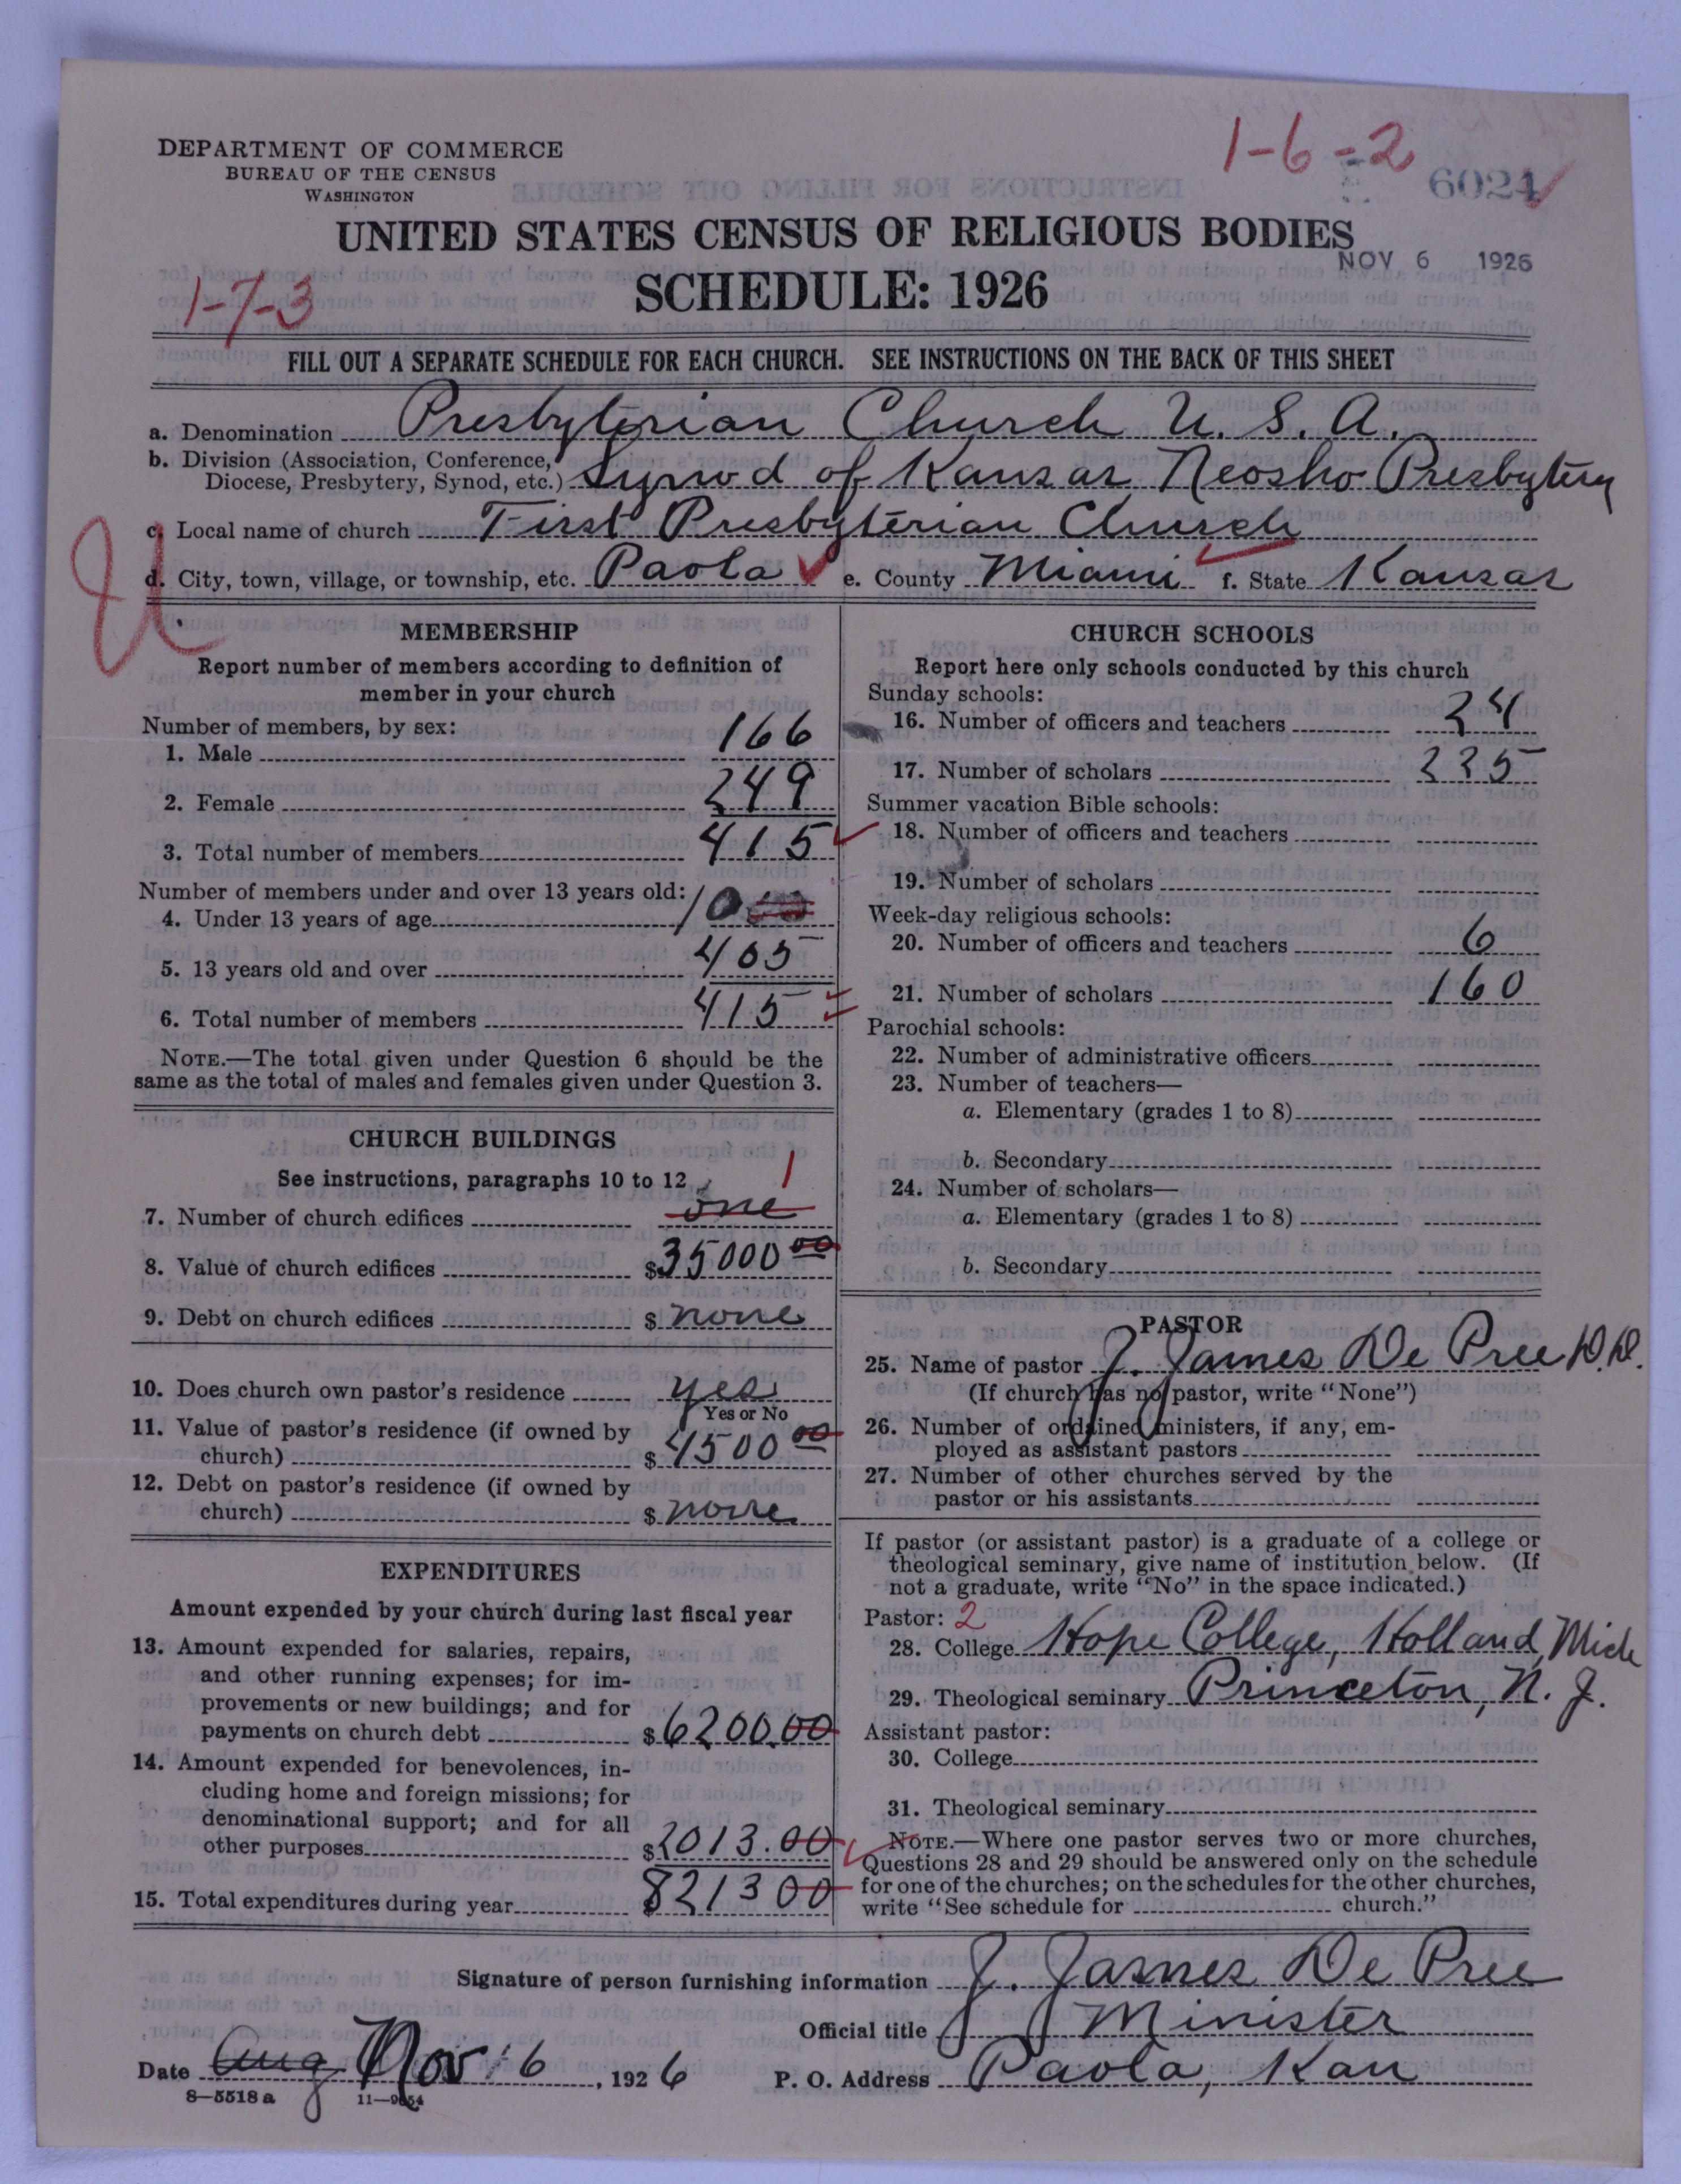 1-6-2
6024
DEPARTMENT OF COMMERCE
BUREAU OF THE CENSUS
WASHINGTON
UNITED STATES CENSUS OF RELIGIOUS BODIES
NOV 6 1926
SCHEDULE: 1926
1-7-3
FILL OUT A SEPARATE SCHEDULE FOR EACH CHURCH. SEE INSTRUCTIONS ON THE BACK OF THIS SHEET
a. Denomination Presbyterian Church U. S. A.
b. Division (Association, Conference,
Diocese, Presbytery, Synod, etc.) Synod of Kansas Neosho Presbytery
c. Local name of church First Presbyterian Church
d. City, town, village, or township, etc. Paola e. County Miami f. State Kansas
MEMBERSHIP
Report number of members according to definition of
member in your church
Number of members, by sex:
1. Male 166
2. Female 249
3. Total number of members 415
Number of members under and over 13 years old:
4. Under 13 years of age 10
5. 13 years old and over 405
6. Total number of members 415
NOTE.—The total given under Question 6 should be the
same as the total of males and females given under Question 3.
CHURCH BUILDINGS
See instructions, paragraphs 10 to 12
1
7. Number of church edifices one
8. Value of church edifices $35000 00
9. Debt on church edifices $ none
10. Does church own pastor's residence yes
Yes or No
11. Value of pastor's residence (if owned by
church) $ 4500 00
12. Debt on pastor's residence (if owned by
church) $ none
EXPENDITURES
Amount expended by your church during last fiscal year
13. Amount expended for salaries, repairs,
and other running expenses; for im-
provements or new buildings; and for
payments on church debt $6200.00
14. Amount expended for benevolences, in-
cluding home and foreign missions; for
denominational support; and for all
other purposes $2013.00
15. Total expenditures during year $821300
CHURCH SCHOOLS
Report here only schools conducted by this church
Sunday schools:
16. Number of officers and teachers 24
17. Number of scholars 225
Summer vacation Bible schools:
18. Number of officers and teachers
19. Number of scholars
Week-day religious schools:
20. Number of officers and teachers 6
21. Number of scholars 160
Parochial schools:
22. Number of administrative officers
23. Number of teachers—
a. Elementary (grades 1 to 8)
b. Secondary
24. Number of scholars—
a. Elementary (grades 1 to 8)
b. Secondary
PASTOR
25. Name of pastor J. James De Pree D.D.
(If church has no pastor, write "None")
26. Number of ordained ministers, if any, em-
ployed as assistant pastors
27. Number of other churches served by the
pastor or his assistants
If pastor (or assistant pastor) is a graduate of a college or
theological seminary, give name of institution below. (If
not a graduate, write "No" in the space indicated.)
Pastor: 2
28. College Hope College, Holland, Mich
29. Theological seminary Princeton, N. J.
Assistant pastor:
30. College
31. Theological seminary
NOTE.—Where one pastor serves two or more churches,
Questions 28 and 29 should be answered only on the schedule
for one of the churches; on the schedules for the other churches,
write "See schedule for church."
Signature of person furnishing information J. James De Pree
Official title Minister
Date Aug Nov 6, 1926 P. O. Address Paola, Kan
8—5518 a 11—9654